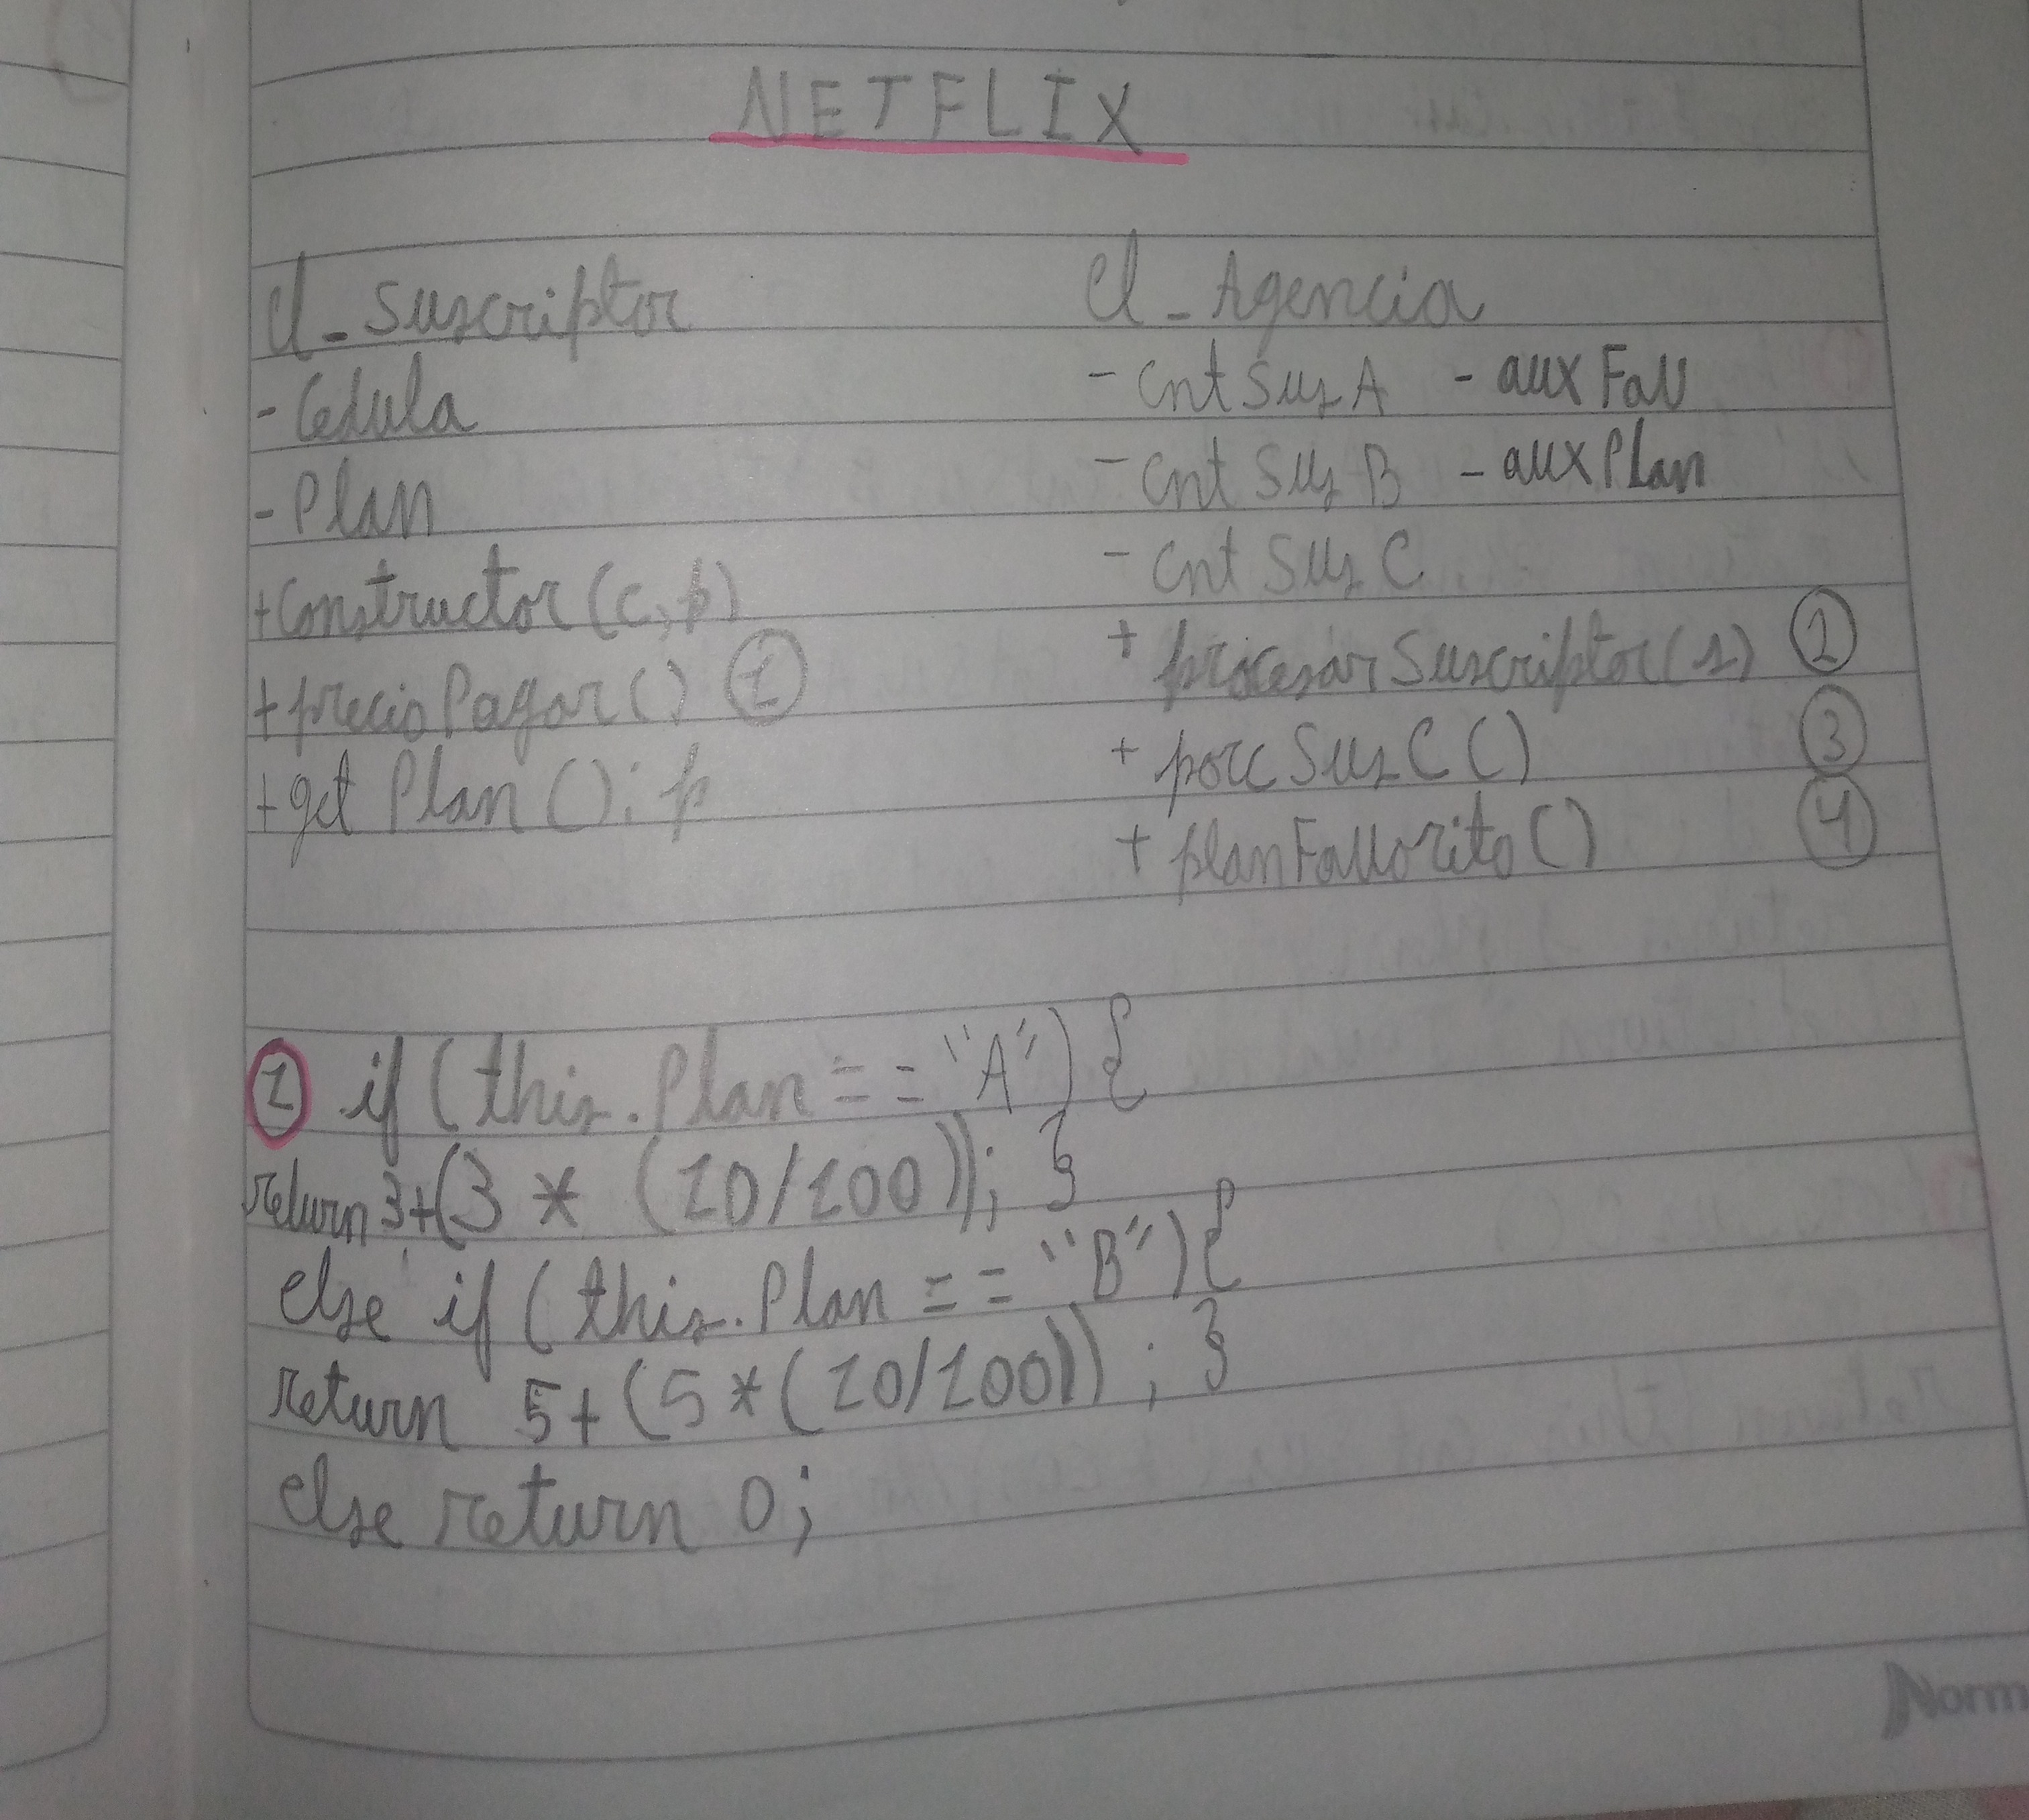 NETFLIX
Cl_Suscriptor
- Cedula
- Plan
+ Constructor (c, p)
+ precioPagar () ①
+ get Plan () : p
Cl_Agencia
- Cnt Sus A - aux Fav
- Cnt Sus B - aux Plan
- Cnt Sus C
+ procesarSuscriptor (s) ②
+ porc Sus C () ③
+ planFavorito () ④
① if (this.Plan == "A") {
return 3+(3 * (10/100)); }
else if (this.Plan == "B") {
return 5+(5*(10/100)) ; }
else return 0;
Norm